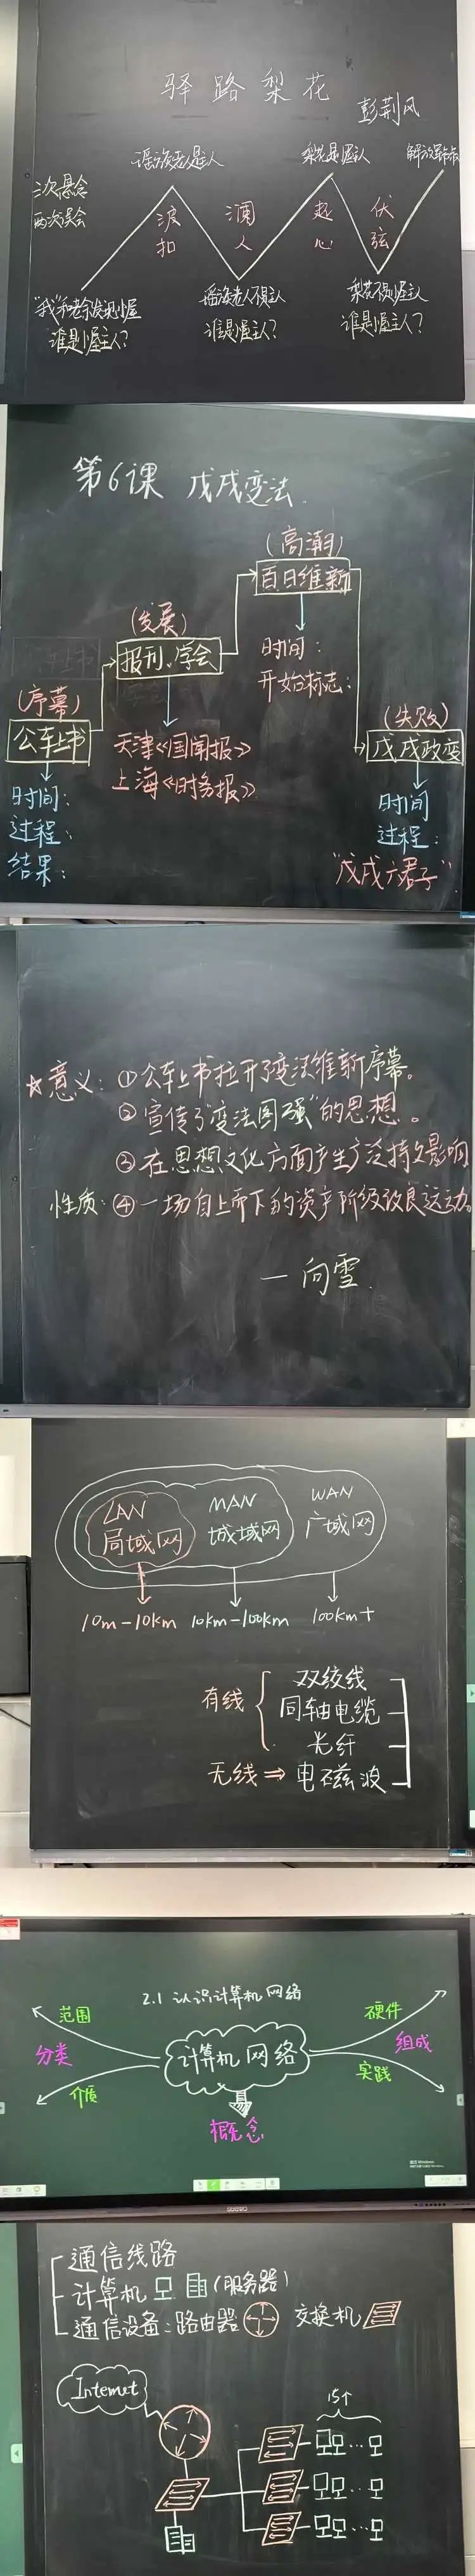 驿路梨花
彭荆风
瑶族老人是主人
梨花是屋主人
解放军
三次悬念
两次误会
波 澜 起 伏
扣 人 心 弦
"我"和老余发现小屋
瑶族老人不是主人
梨花不是小屋主人
谁是小屋主人?
谁是小屋主人?
谁是小屋主人?
第6课 戊戌变法
(高潮)
百日维新
(发展)
报刊、学会
时间:
开始标志:
(序幕)
公车上书
(失败)
戊戌政变
天津《国闻报》
上海《时务报》
时间:
过程:
结果:
时间
过程:
"戊戌六君子"
☆意义:①公车上书拉开了变法维新序幕。
②宣传了"变法图强"的思想。
③在思想文化方面产生广泛持久影响
性质:④一场自上而下的资产阶级改良运动。
—向雪
LAN MAN WAN
局域网 城域网 广域网
10m-10km 10km-100km 100km+
有线 双绞线
同轴电缆
光纤
无线⇒电磁波
2.1 认识计算机网络
范围 硬件
分类 计算机网络 组成
介质 实践
概念
seewo
通信线路
计算机 (服务器)
通信设备:路由器 交换机
Internet
15个